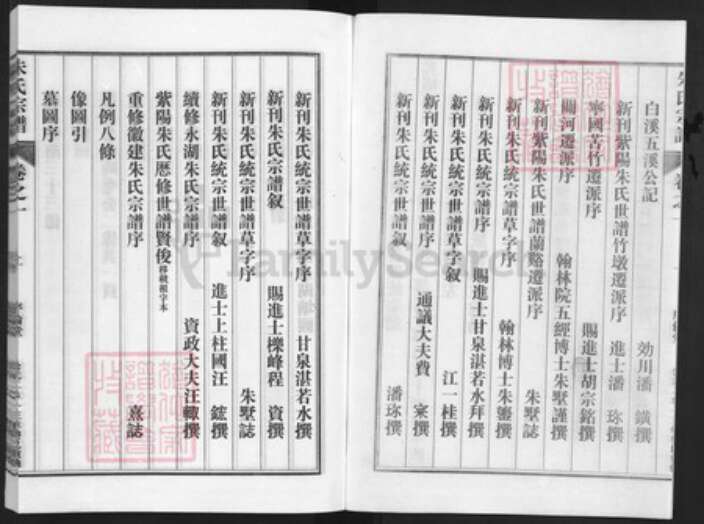 朱氏宗譜
卷之一
白溪五溪公記 効川潘 鐄撰
新刊紫陽朱氏世譜竹墩遷派序 進士潘 珎撰
寧國苦竹遷派序 賜進士胡宗銘撰
關河遷派序 翰林院五經博士朱墅謹撰
新刊紫陽朱氏世譜蘭谿遷派序 朱墅誌
新刊朱氏統宗世譜草字序 翰林博士朱鎏撰
新刊朱氏統宗世譜序 賜進士甘泉湛若水拜撰
新刊朱氏統宗世譜草字叙 江一桂撰
新刊朱氏統宗世譜序 通議大夫費 寀撰
新刊朱氏統宗世譜叙 潘珎撰
新刊朱氏統宗世譜草字序 甘泉湛若水撰
新刊朱氏宗譜叙 賜進士櫟峰程 資撰
新刊朱氏統宗世譜草字序 朱墅誌
新刊朱氏統宗世譜叙 進士上柱國汪 鋐撰
續修永湖朱氏宗譜序 資政大夫汪 撰
紫陽朱氏厯修世譜賢俊
重修徽建朱氏宗譜序 熹誌
凡例八條
像圖引
墓圖序
朱氏宗譜
卷之一
FamilySearch